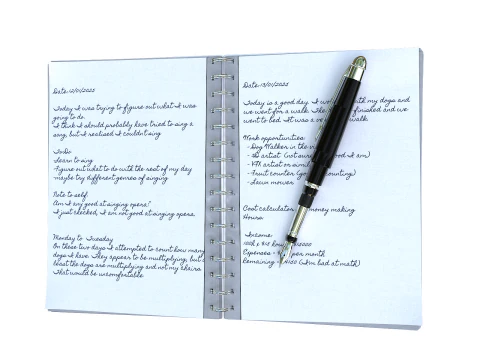 Date: 12/01/2025
Today I was trying to figure out what I was
going to do.
I think I should probably have tried to sing a
song, but I realised I couldn't sing
ToDo:
-Learn to sing
-Figure out what to do with the rest of my day
-maybe try different genres of singing
Note to self:
Am I any good at singing opera?
I just checked, I am not good at singing opera.
Monday to Tuesday
On these two days I attempted to count how many
dogs I have. They appear to be multiplying, but
least the dogs are multiplying and not my chairs
That would be uncomfortable.
Date: 13/01/2025
Today is a good day. I with my dogs and
we went for a walk. The finished and we
went to bed. It was a walk
Work opportunities:
- Dog Walker in the
- artist (not sure good I am)
- VFX artist or
- Fruit counter counting)
- Lawn mower
Cost calculator money making
Hours:
Income:
Expenses = per month
Remaining = (I'm bad at math)